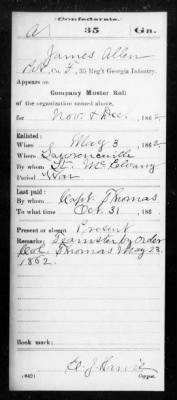 Confederate.
A 35 Ga.
James Allen
Co. F, 35 Reg't Georgia Infantry.
Appears on
Company Muster Roll
of the organization named above,
for Nov. & Dec., 186
Enlisted:
When May 3, 186
Where Lawrenceville
By whom McElvany
Period War
Last paid:
By whom Capt. Thomas
To what time Oct. 31, 186
Present or absent Present
Remarks: Teamster by order
Col. Thomas May 23,
1862.
Book mark:
(642) Copyist.